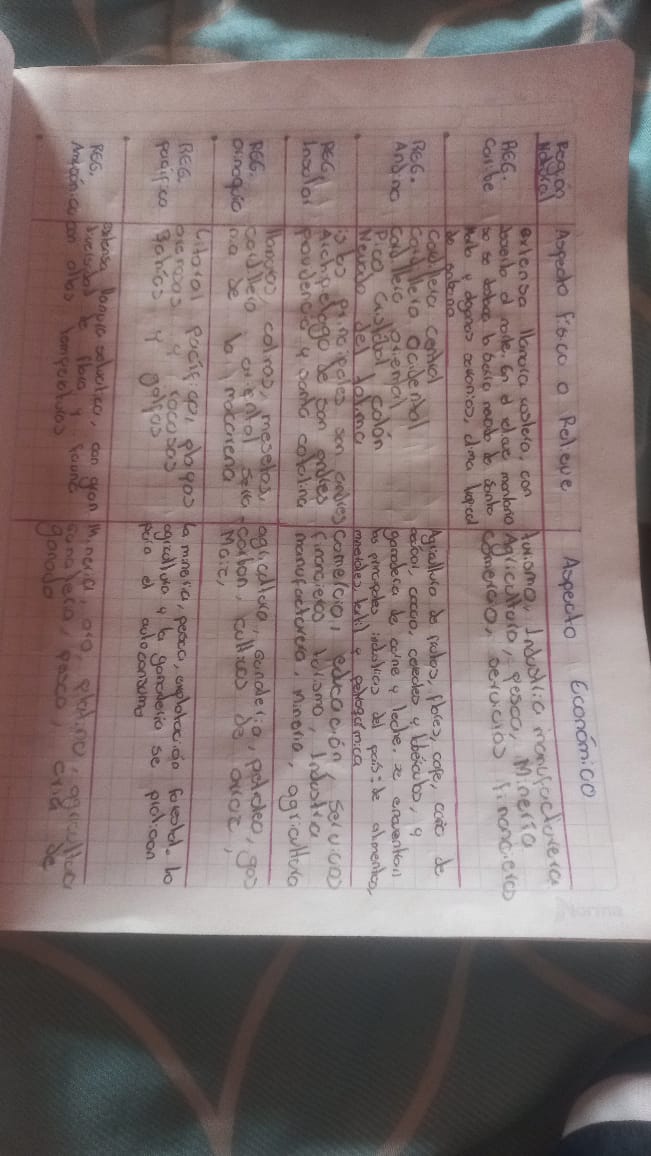 Región Natural
Aspecto físico o Relieve
Aspecto Económico
REG. Caribe
extensa llanura costera, con
desierto al norte. En el relieve montaño
so se destaca la sierra nevada de santa
marta y algunas serranías, clima tropical
Turismo, Industria manufacturera
Agricultura, pesca, Minería
Comercio, servicios financieros
REG. Andina
Cordillera central
Cordillera Occidental
Cordillera oriental
Pico Cristóbal Colón
Nevado del tolima
Agricultura de frutas, flores, café, caña de
azúcar, cacao, cereales y tubérculos, y
ganadería de carne y leche. se encuentran
las principales industrias del país: de alimentos,
textil y
REG. Insular
islas principales son andres
Archipielago de san andres
providencia y santa catalina
Comercio, educación, servicios
financieros turismo, Industria
manufacturera, Minería, agricultura
REG. orinoquia
llanuras, colinas, mesetas,
cordillera oriental serra-
nia de la macarena
agricultura, ganaderia, petroleo, gas
carbon, cultivos de arroz,
Maiz,
REG. pacifico
Litoral pacífico, playas
arenosas y rocosas
Bahías y golfos
La mineria, pesca, explotación forestal. la
agricultura y la ganaderia se practican
para el autoconsumo
REG. Amazónica
extensa llanura selvatica, con gran
diversidad de flora y fauna
con altas temperaturas
Mineria, oro, platino, agricultura
ganadera, pesca, cria de
ganado
Norma